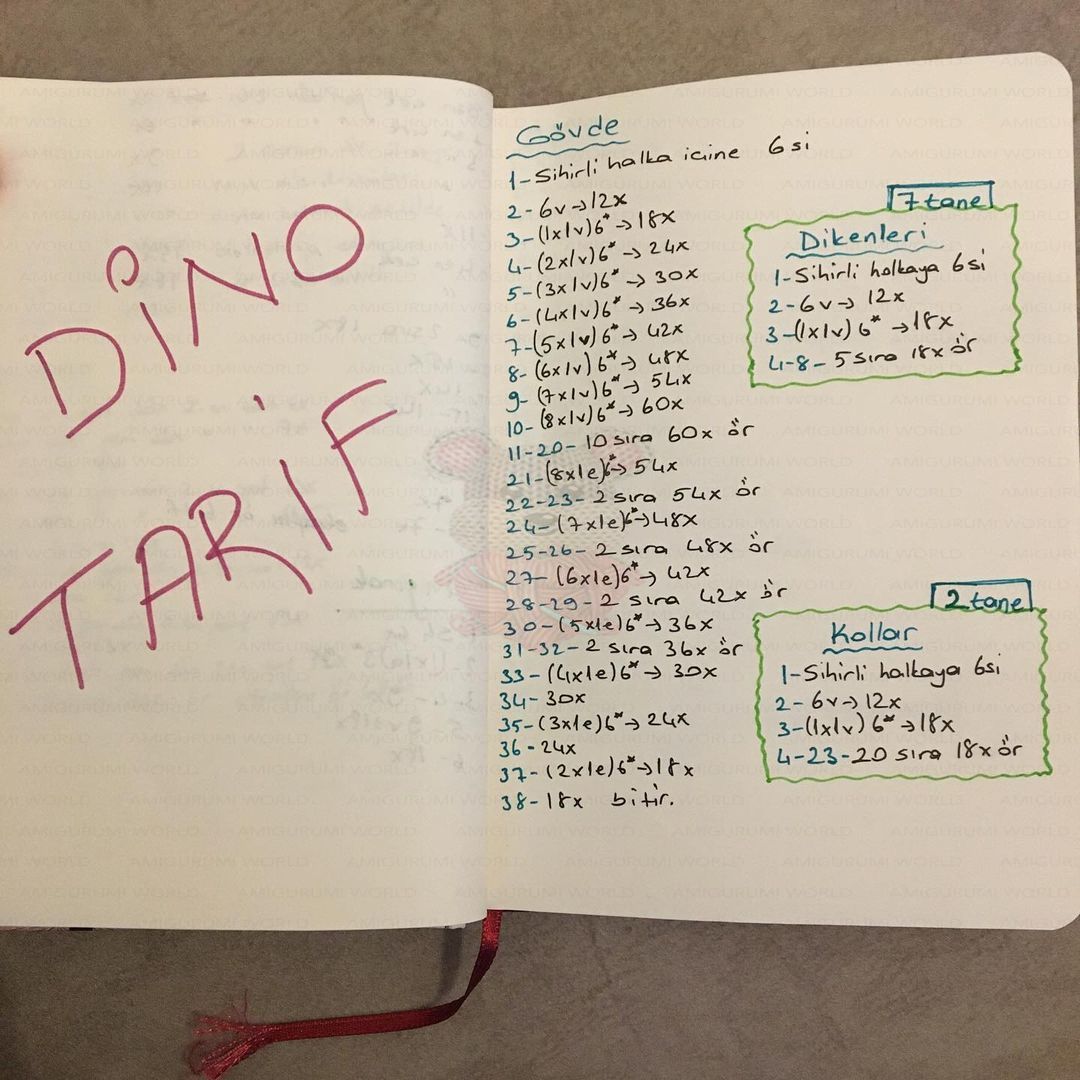 DİNO
TARİF
Gövde
1-Sihirli halka icine 6 si
2-6v→12x
3-(1x1v)6*→18x
4-(2x1v)6*→24x
5-(3x1v)6*→30x
6-(4x1v)6*→36x
7-(5x1v)6*→42x
8-(6x1v)6*→48x
9-(7x1v)6*→54x
10-(8x1v)6*→60x
11-20-10 sıra 60x ör
21-(8x1e)6*→54x
22-23-2 sıra 54x ör
24-(7x1e)6*→48x
25-26-2 sıra 48x ör
27-(6x1e)6*→42x
28-29-2 sıra 42x ör
30-(5x1e)6*→36x
31-32-2 sıra 36x ör
33-(4x1e)6*→30x
34-30x
35-(3x1e)6*→24x
36-24x
37-(2x1e)6*→18x
38-18x bitir.
7 tane
Dikenleri
1-Sihirli halkaya 6si
2-6v→12x
3-(1x1v)6*→18x
4-8-5 sıra 18x ör
2 tane
Kollar
1-Sihirli halkaya 6si
2-6v→12x
3-(1x1v)6*→18x
4-23-20 sıra 18x ör
AMIGURUMI WORLD